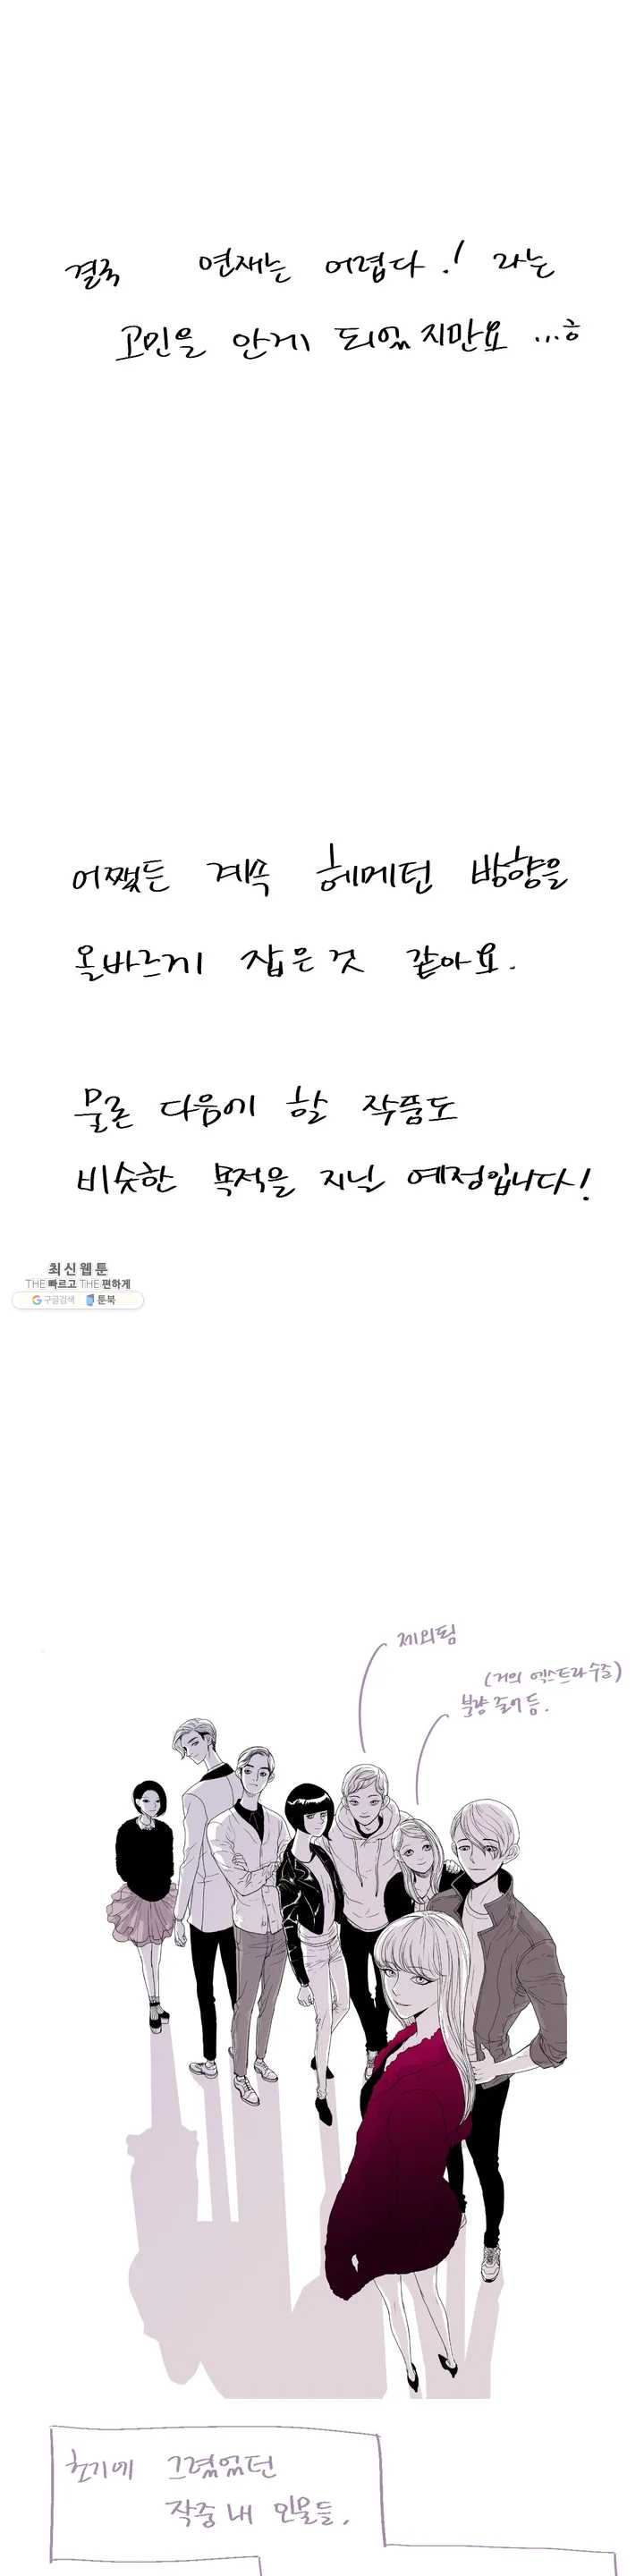 결국 연재는 어렵다! 라는
고민을 안게 되었지만요 ...ㅎ
어쨌든 계속 헤메던 방향을
올바르게 잡은것 같아요.
물론 다음에 할 작품도
비슷한 목적을 지닐 예정입니다!
최신웹툰
THE 빠르고 THE 편하게
구글검색 툰북
제외됨
(거의 엑스트라수준)
분량 줄어듬.
초기에 그렸었던
작중 내 인물들.